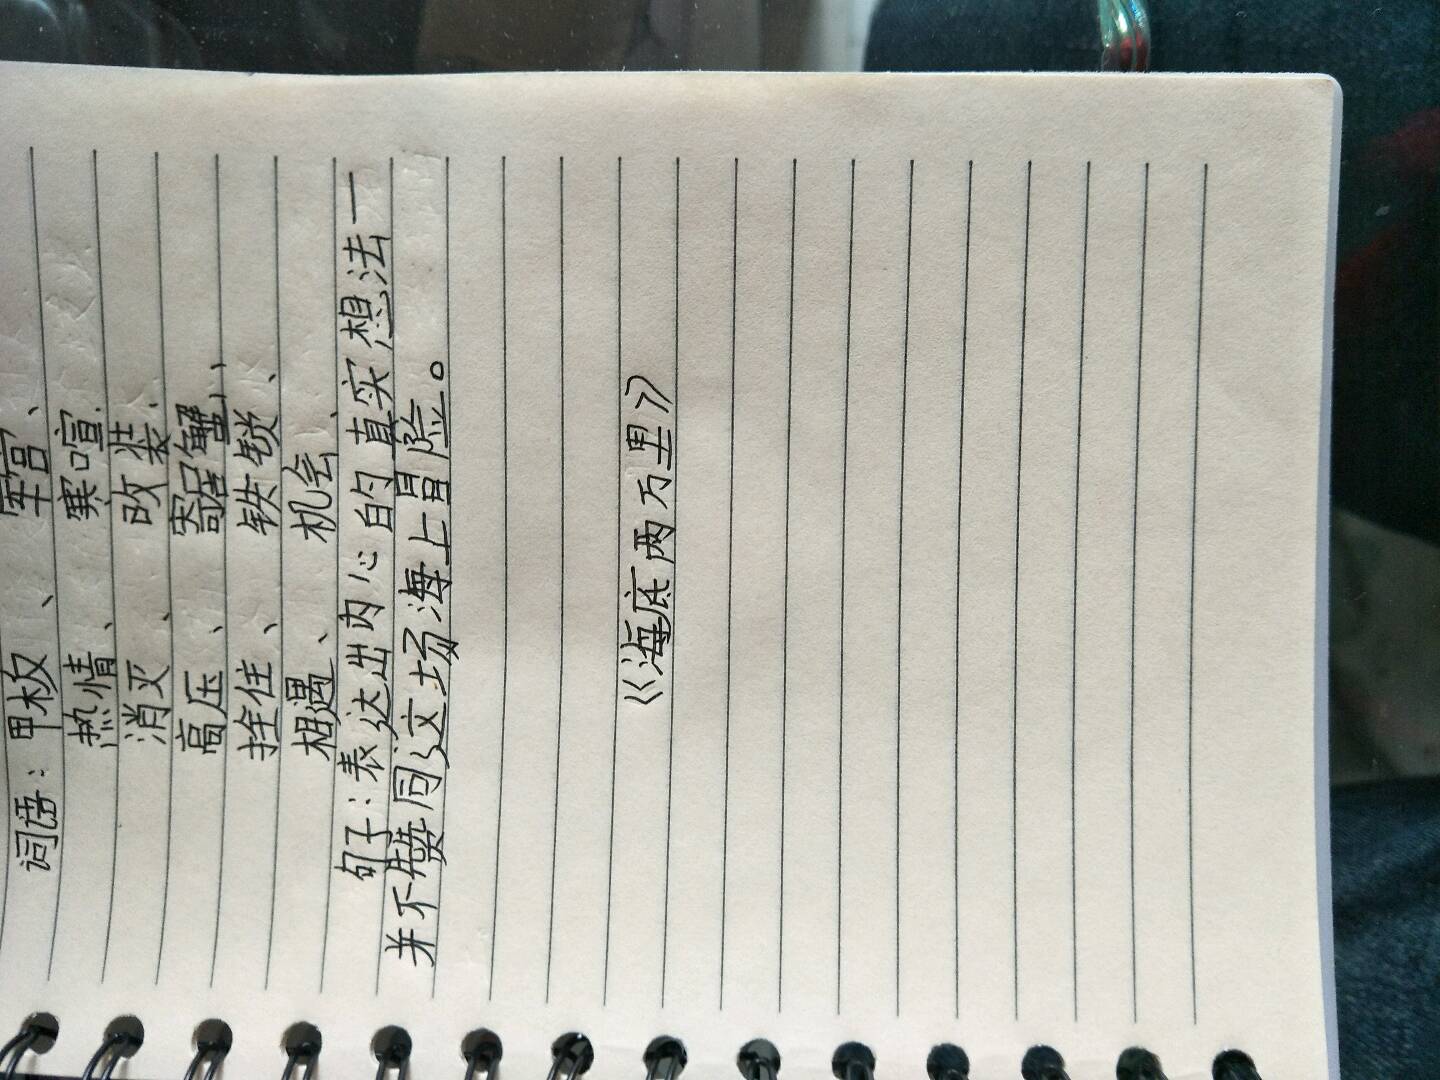 词语：甲板、军官、
热情、寒喧、
消灭、改装、
高压、
拴住、铁锁、
相遇、机会、
句子：表达出内心的真实想法一
并不赞同这场海上冒险。
《海底两万里》